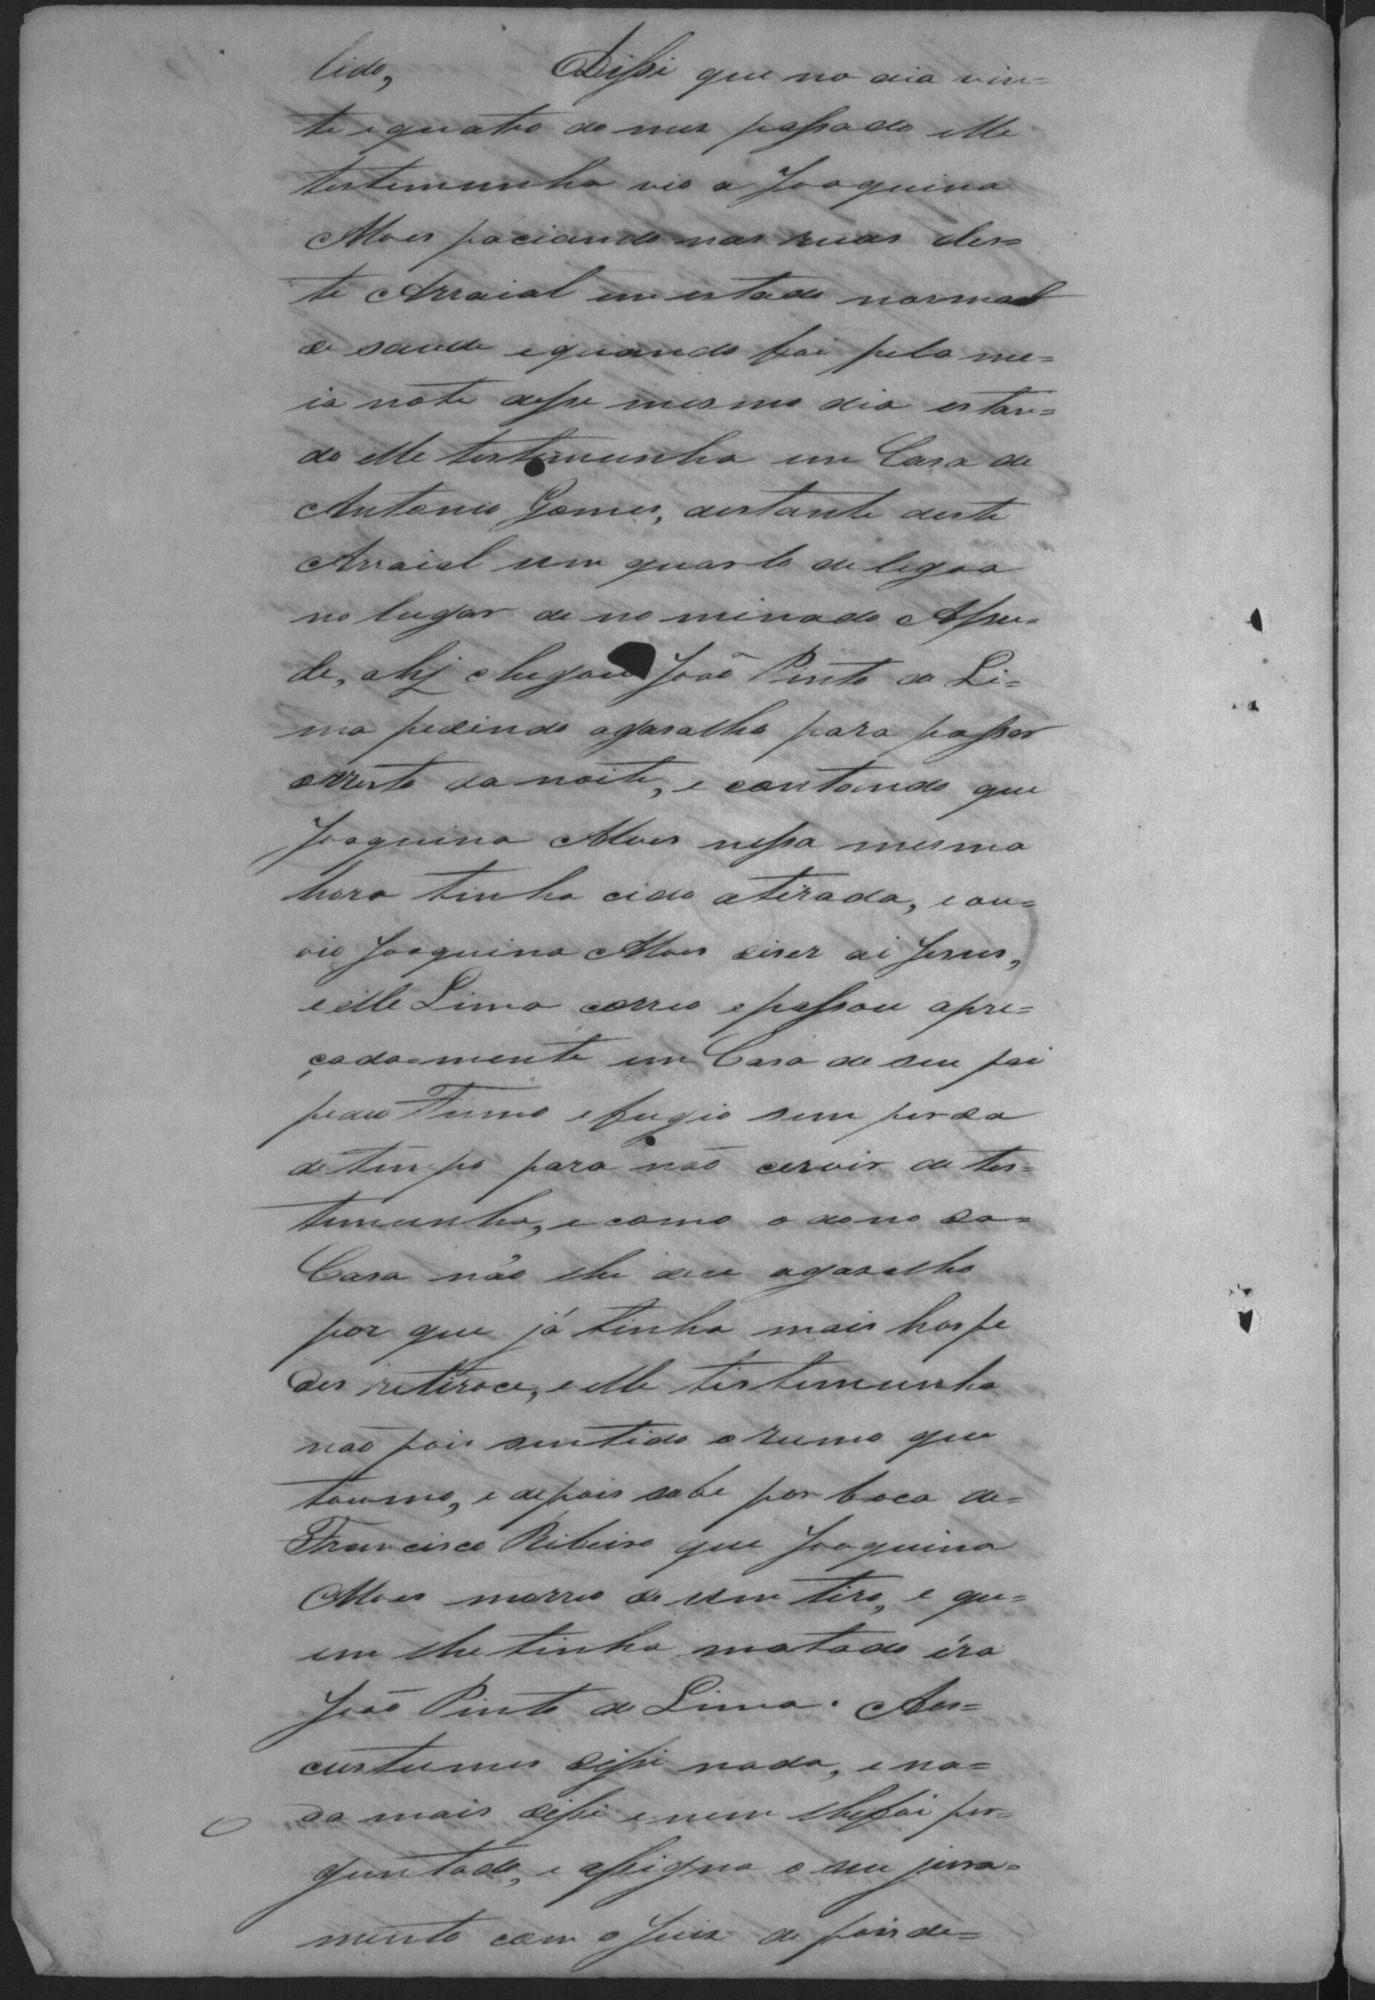 lido, Disse que no dia vin=
te e quatro do mes passado elle
testemunha vio a Joaquina
Alves paciando nas ruas des=
te Arraial em estado normal
de saude e quando foi pela me=
ia note desse mesmo dia estan=
do elle testemunha em Casa de
Antonio Gomes, destante deste
Arraial um quarto de legoa
no lugar denominado Assu=
de, ahj chegou João Pinto de Li=
ma pedindo agasalho para passar
orresto da noite, e contando que
Joaquina Alves nessa mesma
hora tinha cido atirada, e ou=
vio Joaquina Alves diser ai Jesus,
e elle Lima correo e passou apre=
çada=mente em Casa de seu pai
pedeu Fumo e fugio sem perda
de tempo para não cervir de tes=
temunha, e como o dono da=
Casa não lhe deu agasalho
por que já tinha mais hospe
des retiroce, e elle testemunha
não pois sentido o rumo que
toumo, e depois sobe por boca de=
Francisco Ribeiro que Joaquina
Alves morreo de um tiro, e qu=
em lhe tinha matado éra
João Pinto de Lima. Aos=
custumes disse nada, e na=
da mais disse e nem lhe foi per=
guntado, e assigna o seu jura=
mento com o Juiz de pois de=